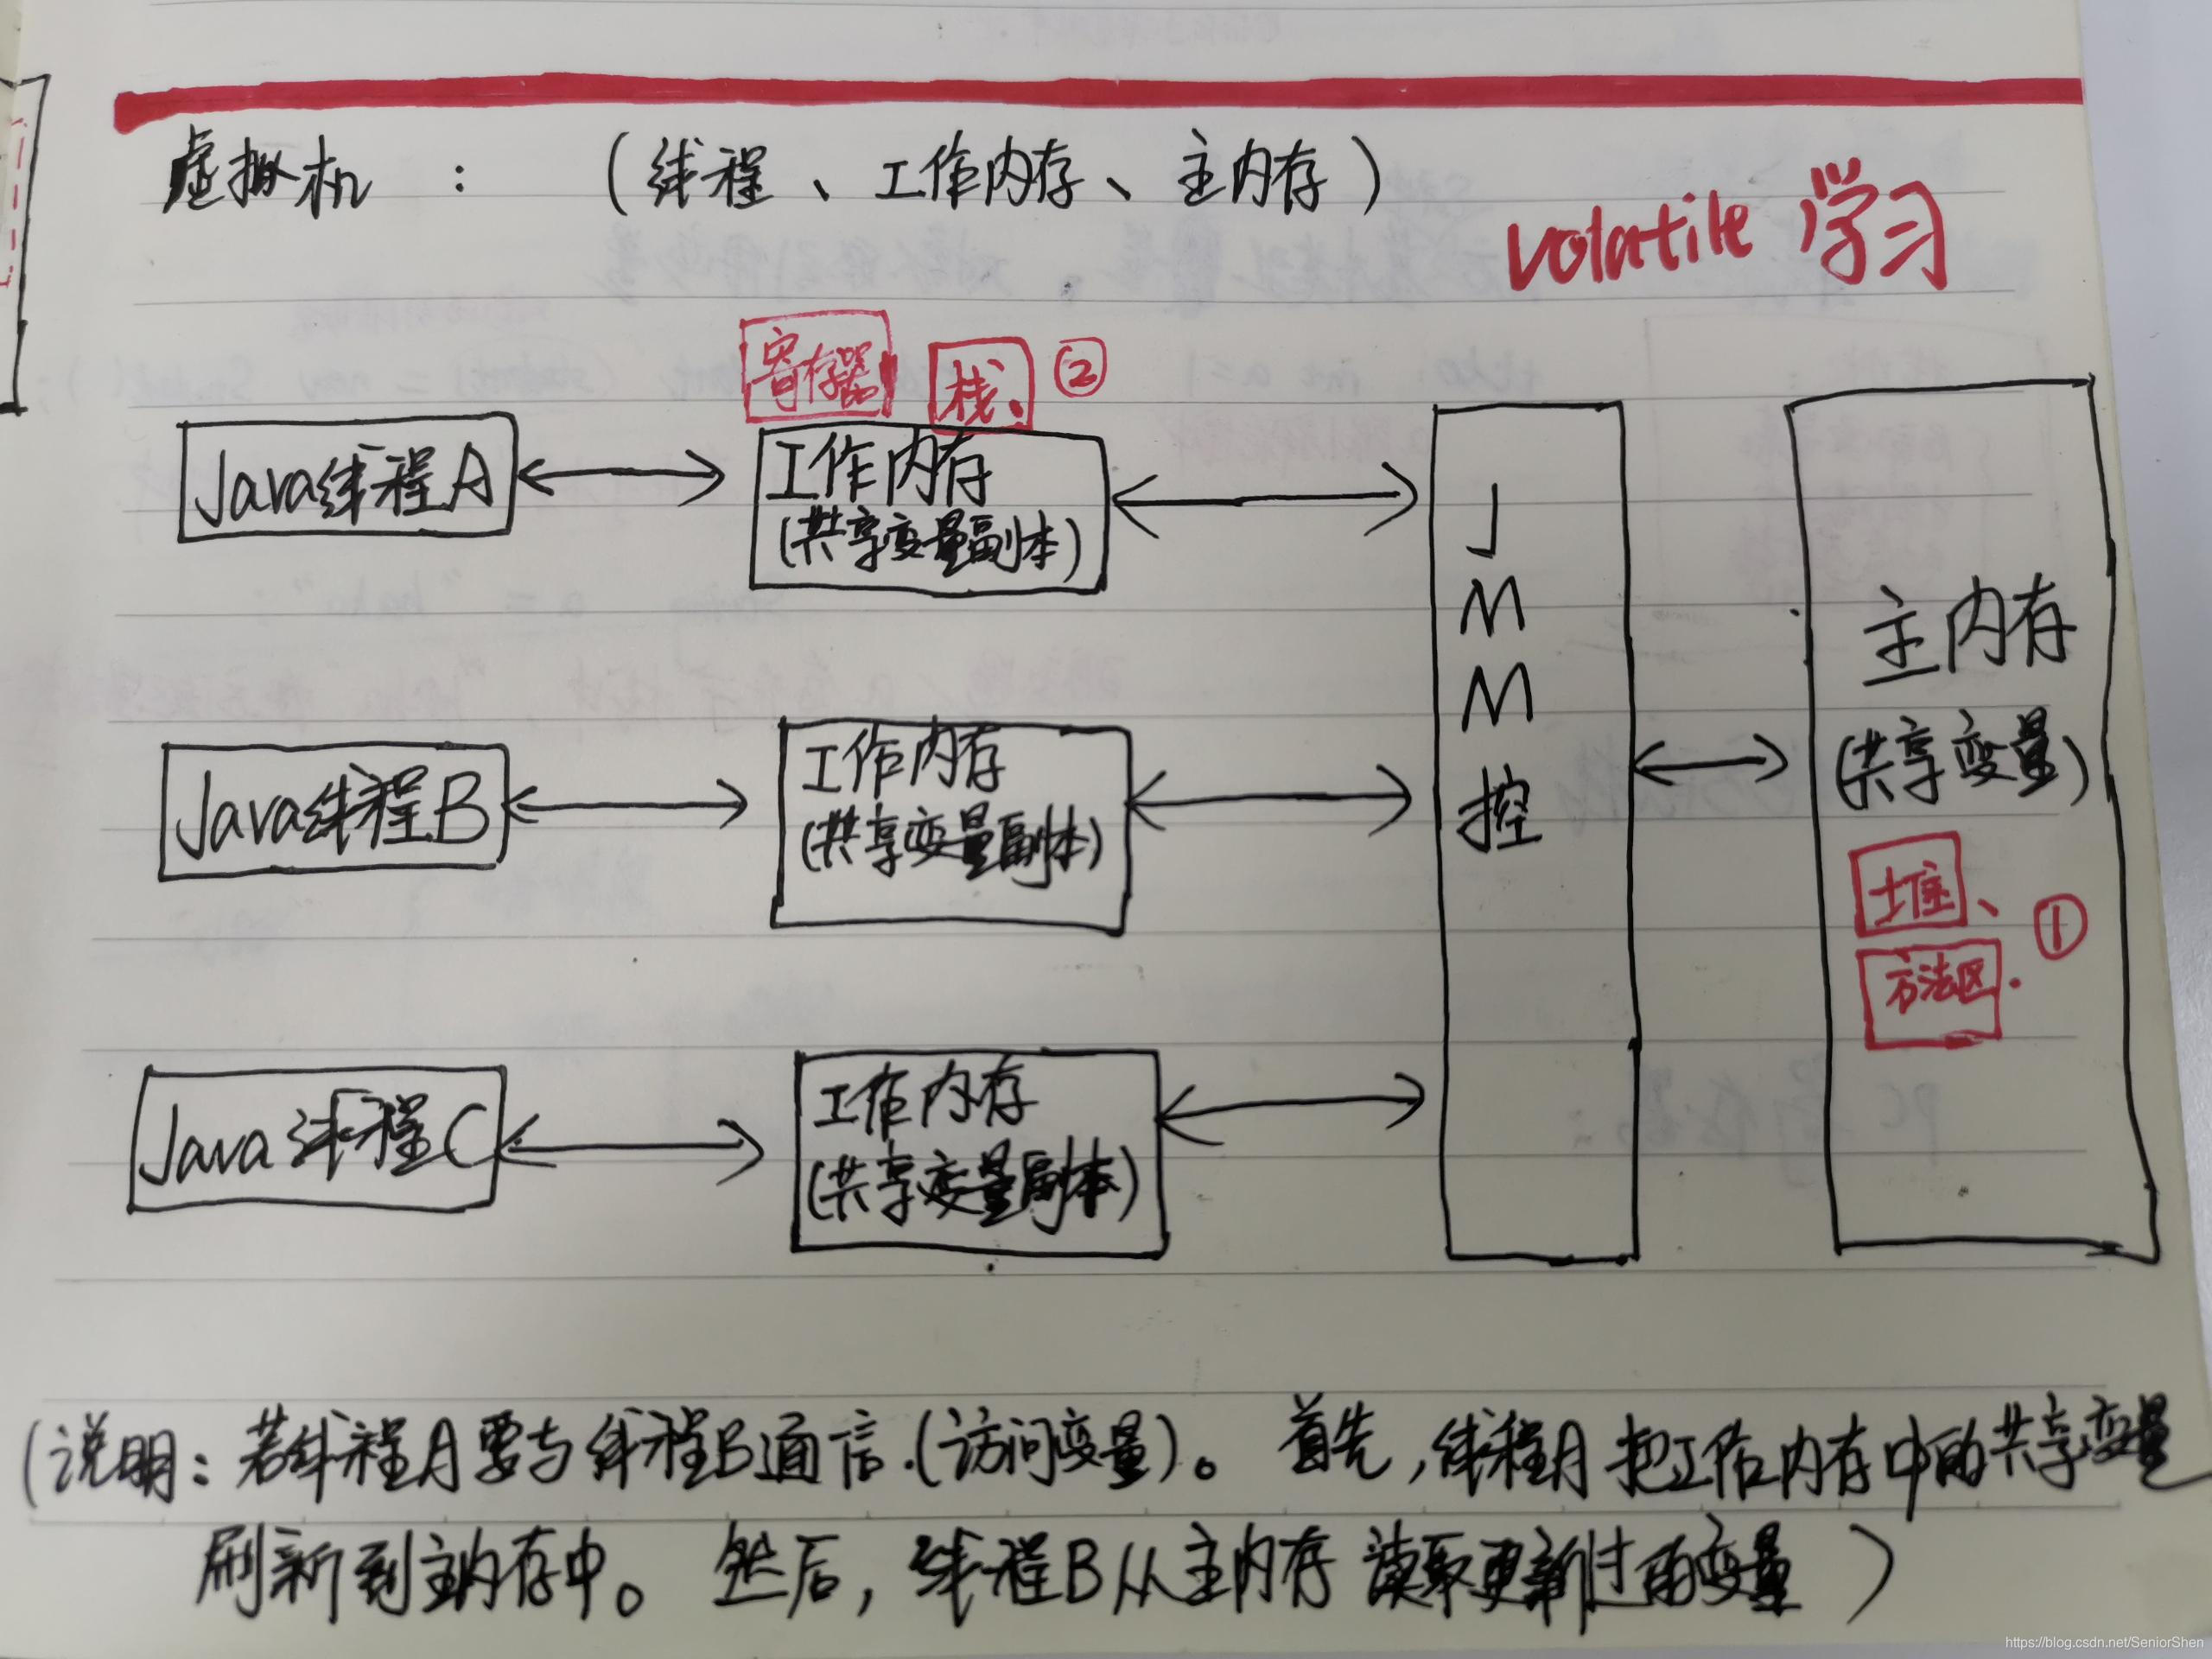 虚拟机 : (线程、工作内存、主内存)
volatile 学习
寄存器 栈. ②
Java线程A
工作内存
(共享变量副本)
Java线程B
工作内存
(共享变量副本)
Java线程C
工作内存
(共享变量副本)
J
M
M
控
主内存
(共享变量)
堆、
方法区. ①
(说明: 若线程A要与线程B通信.(访问变量)。 首先,线程A把工作内存中的共享变量
刷新到主内存中。 然后, 线程B从主内存 读取更新过的变量 )
https://blog.csdn.net/SeniorShen